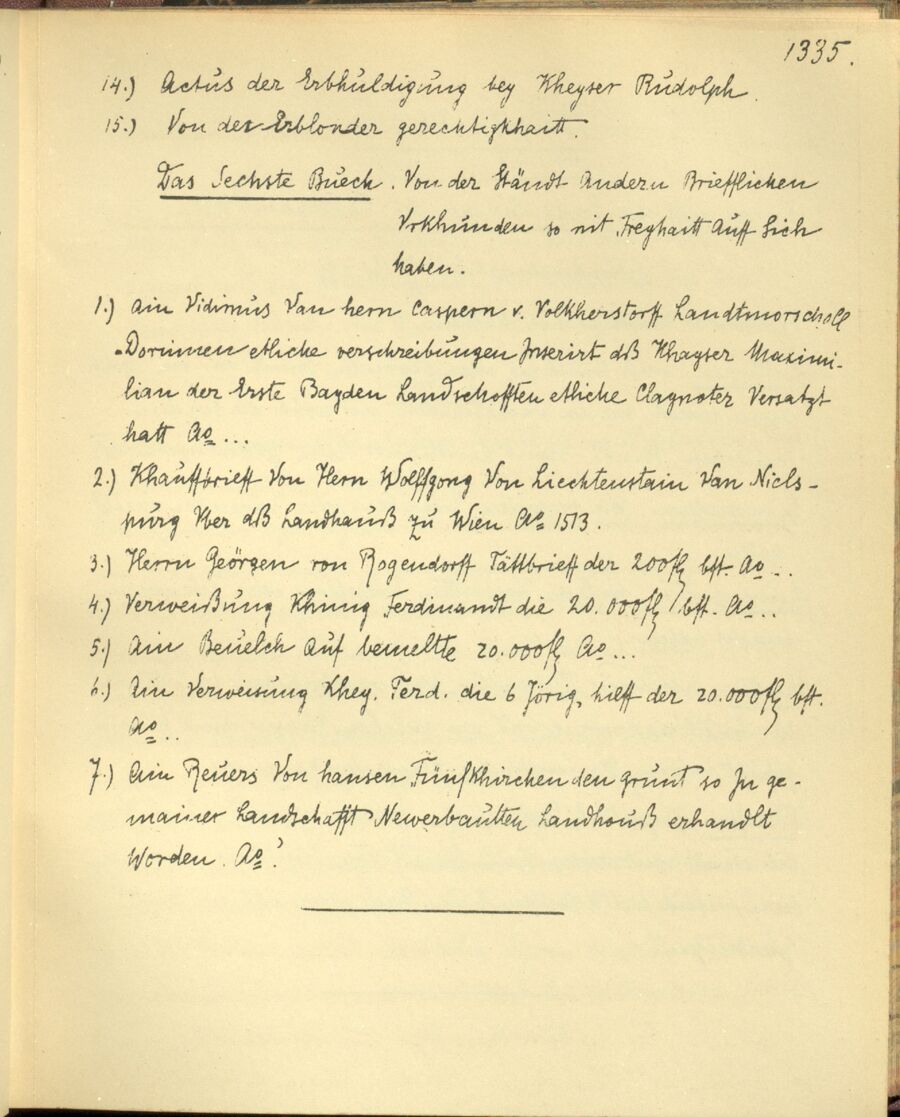 1335.
14.) Actus der Erbhuldigung bey Kheyser Rudolph.
15.) Von der Erblonder gerechtigkhaitt.
Das Sechste Buech. Von der Ständt Andern Briefflichen
Vrkhunden so nit Freyhaitt Auff Sich
haben.
1.) Ain Vidimus Van hern Caspern v. Volkherstorff Landtmorscholl
Dorinnen etliche verschreibungen Inserirt dß Khayser Maximi-
lian der Erste Bayden Landschofften etliche Claynoter Versatzt
hatt Ao...
2.) Khauffbrieff Von Hern Wolffgong Von Liechtenstain Van Nicls-
purg Vber dß Landhauß zu Wien Ao 1513.
3.) Herrn Geörgen von Rogendorff Tättbrieff der 200fl bft. Ao...
4.) Verweißung Khinig Ferdinandt die 20.000fl bft. Ao...
5.) Ain Beuelch Auf bemeltte 20.000fl Ao...
6.) Ain Verweisung Khey. Ferd. die 6 Jörig. hilff der 20.000fl bft.
Ao..
7.) Ain Reuers Von hansen Fünfkhirchen den grunt so In ge-
mainer Landschafft Newerbautten Landhouß erhandlt
Worden. Ao?